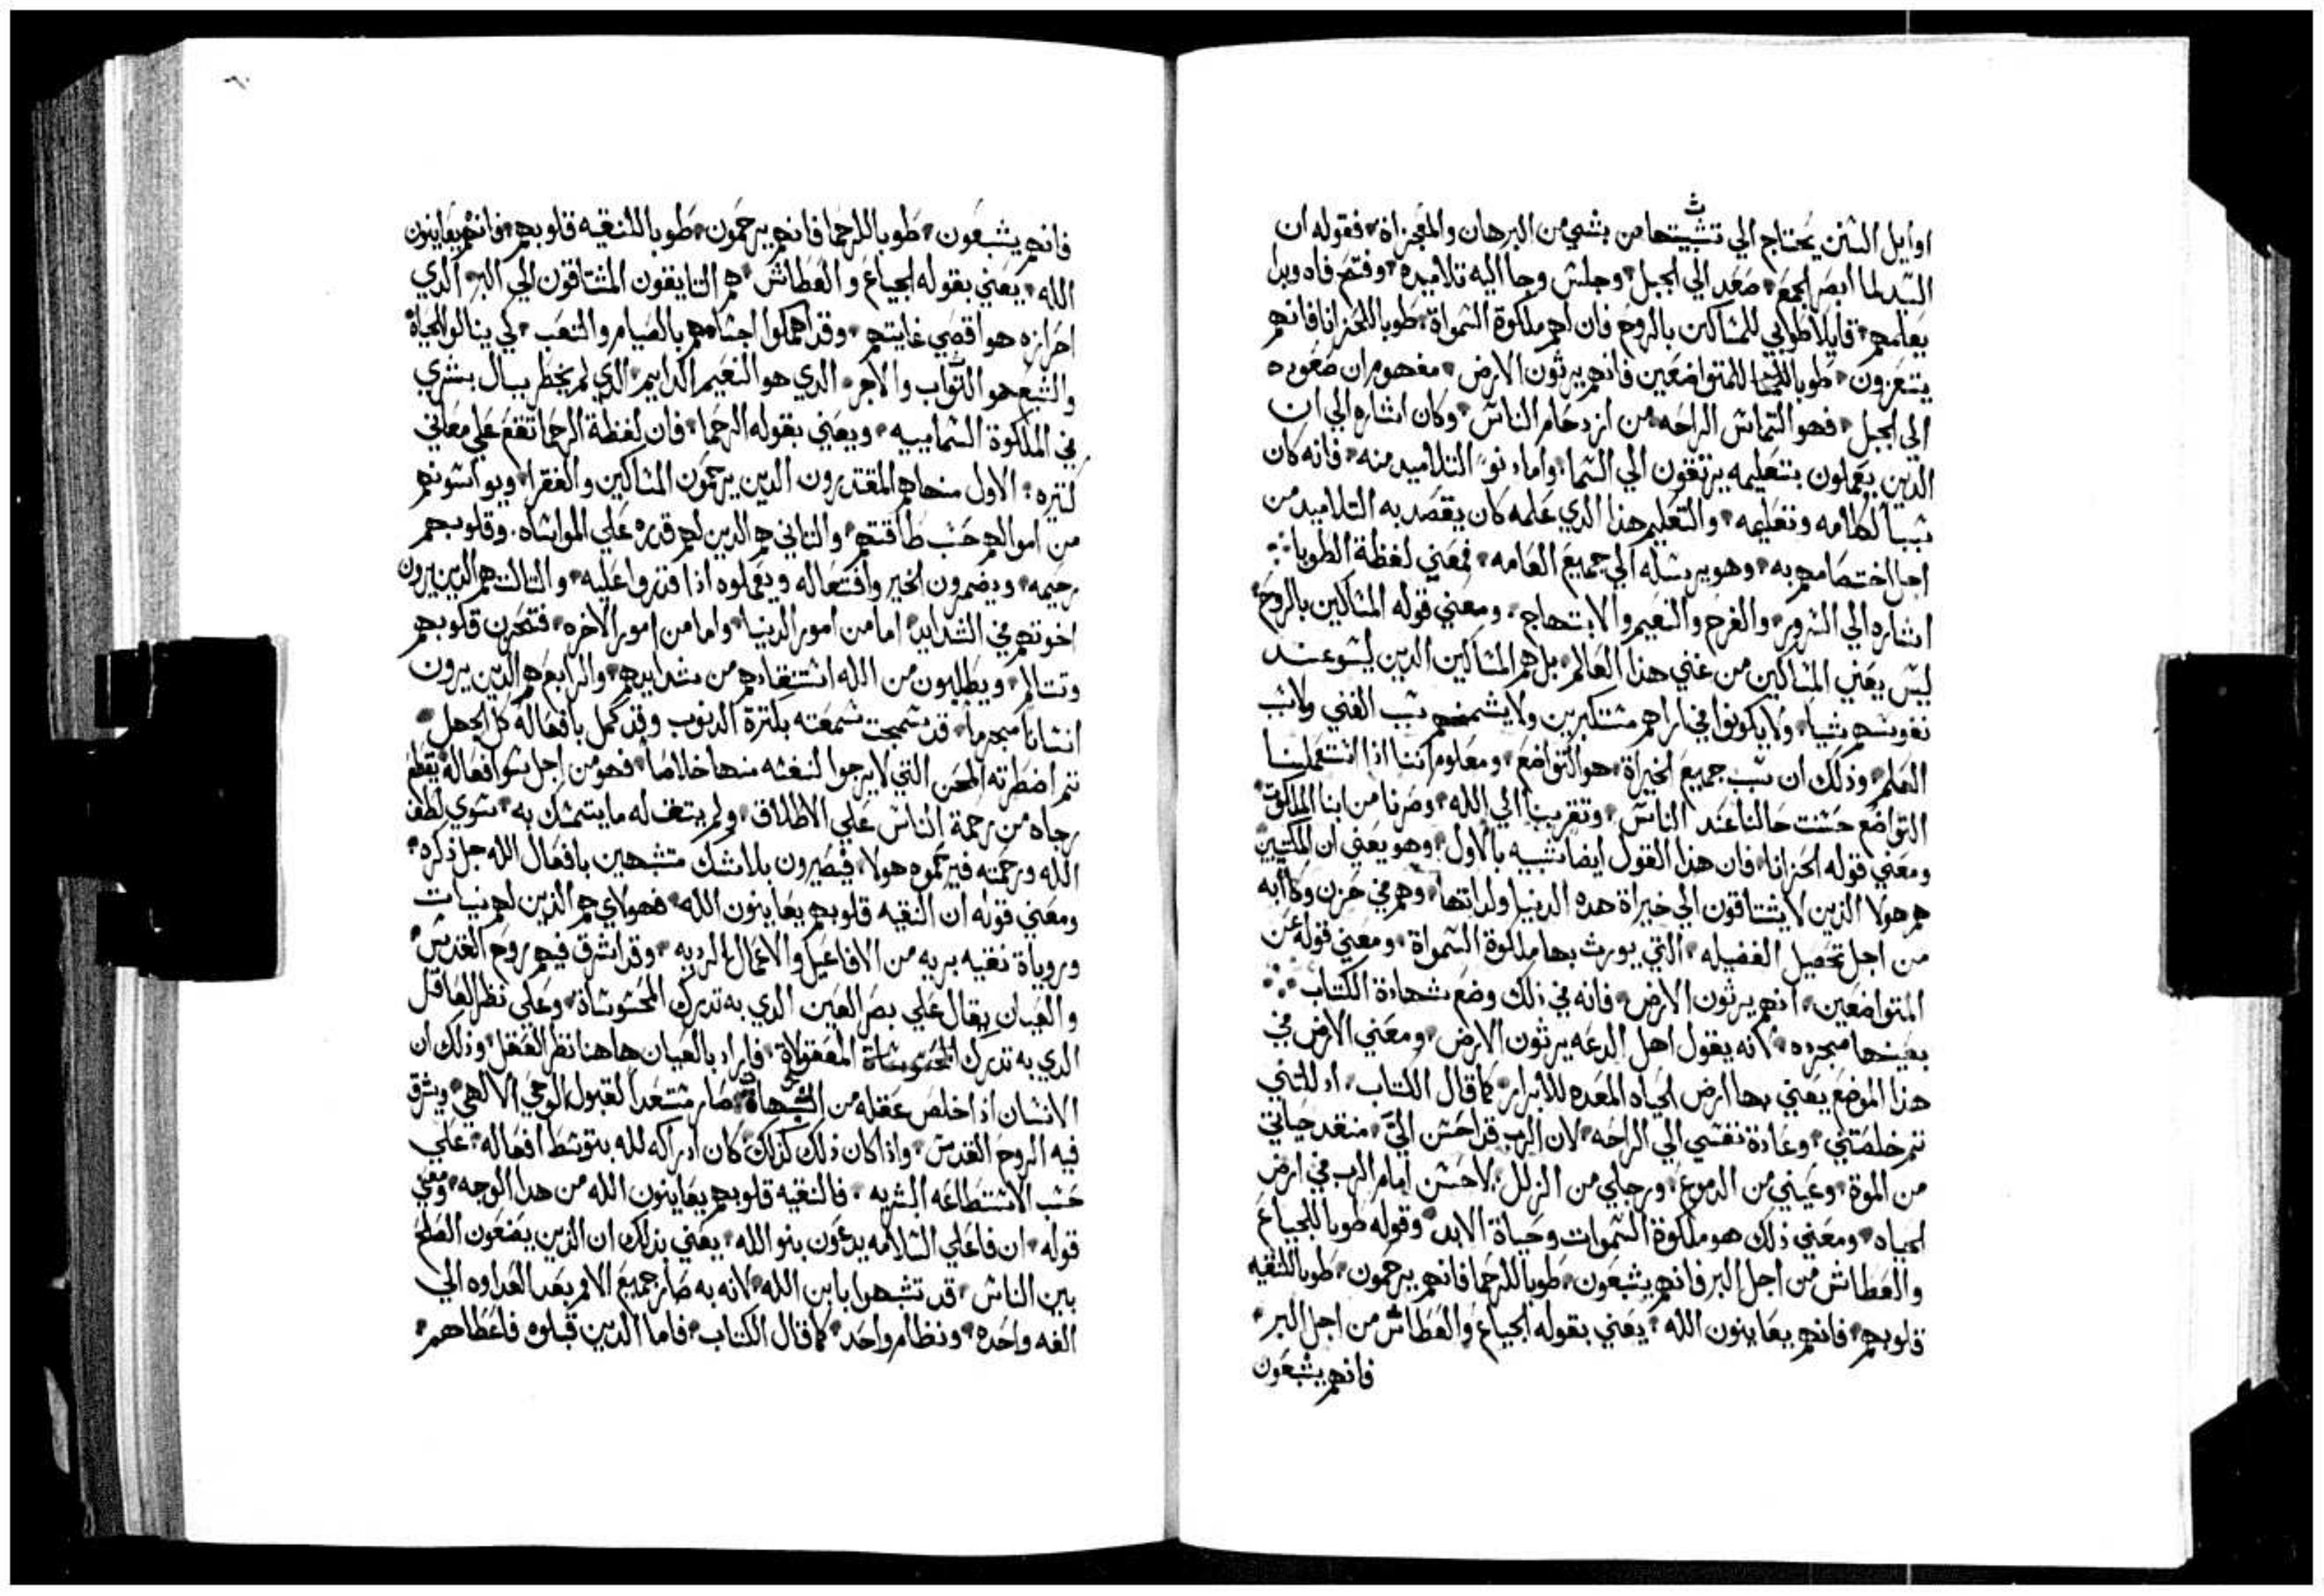 اوايل السنن يحتاج الي تثبيتها من بشي من البرهان والمعجزاة، فقوله ان
السيد لما ابصر الجمع، صعد الي الجبل، وجلس وجا اليه تلاميده، وفتح فاه وبدا
يعلمهم، قايلا طوبي للمساكين بالروح فان لهم ملكوة السمواة، طوبا للحزانا فانهم
يتعزون، طوبا للمتواضعين فانهم يرثون الارض، مفهوم ان صعوده
الي الجبل، فهو التماس الراحه من ازدحام الناس، وكان اشاره الي ان
الذين يعملون بتعليمه يرتقون الي السما، واما دنو التلاميد منه، فانه كان
سببا لكلامه وتعليمه، والتعليم هذا الدي علمه كان يقصد به التلاميد من
اجل اختصاصهم به، وهو يرسله الي جميع العامه، فمعني لفظة الطوبا
اشاره الي السرور، والفرح والنعيم والابتهاج، ومعني قوله المساكين بالروح
ليس يعني المساكين من غني هذا العالم، بل هم المساكين الدين ليسو عند
نفوسهم شيا، ولا يكونوا في اراهم مستكبرين ولا يشمخهم سبب الغني ولا سبب
العلم، وذلك ان سبب جميع الخيراة، هو التواضع، ومعلوم اننا اذا استعملنا
التواضع حسنت حالنا عند الناس، وتقربنا الي الله، وصرنا من ابنا الملكوة
ومعني قوله الحزانا، فان هذا القول ايضا شبيه بالاول، وهو يعني ان المكتيبين
هم هولا الذين لا يشتاقون الي خيراة هده الدنيا ولداتها، وهم في حزن وكاابه
من اجل تحصيل الفضيله، التي يورث بها ملكوة السمواة، ومعني قوله عن
المتواضعين، انهم يرثون الارض، فانه في ذلك وضع شهادة الكتاب
بعينها مجرده، لانه يقول اهل الدعه يرثون الارض، ومعني الارض في
هذا الموضع يعني بها ارض الحياه المعده للابرار، كما قال الكتاب، اذللتني
ثم خلصتني، وعادة نفسي الي الراحه، لان الرب قد احسن الي، منقد حياتي
من الموة، وعيني من الدموع، ورجلي من الزلل، لاحسن امام الرب في ارض
الحياه، ومعني ذلك هو ملكوة السموات وحياة الابد، وقوله طوبا للجياع
والعطاش من اجل البر فانهم يشبعون، طوبا للرحما فانهم يرحمون، طوبا للنقيه
قلوبهم، فانهم يعاينون الله، يعني بقوله الجياع والعطاش من اجل البر،
فانهم يشبعون
فانهم يشبعون، طوبا للرحما فانهم يرحمون، طوبا للنقيه قلوبهم، فانهم يعاينون
الله، يعني بقوله الجياع والعطاش، هم التايقون المشتاقون الي البر، الدي
احرازه هو اقصي غايتهم، وقد اهملوا اجسامهم بالصيام والتعب، لكي ينالوا الحياة
والشبع هو الثواب والاجر، الدي هو النعيم الدايم، الدي لم يخطر ببال بشري
في الملكوة السماييه، ويعني بقوله الرحما، فان لفظة الرحما تقع علي معاني
كتيره، الاول منها هم المقتدرون الدين يرحمون المساكين والفقرا، ويواسونهم
من اموالهم حسب طاقتهم، والتاني هم الدين لهم قدره علي المواساه، وقلوبهم
رحيمه، ويضمرون الخير وافتعاله ويعملوه اذا قدروا عليه، والتالت هم الدين يرون
اخوتهم في الشدايد، اما من امور الدنيا، واما من امور الاخره، فتحزن قلوبهم
وتتالم، ويطلبون من الله استنقادهم من شدايدهم، والرابع هم الدين يرون
انسانا مجرما، قد سمجت سمعته بكترة الدنوب وقد كمل بافعاله كل الجهل،
تم اضطرته المحن التي لا يرجوا لنفسه منها خلاصا، فهو من اجل سوا افعاله يقطع
رجاه من رحمة الناس علي الاطلاق، ولم يتبقا له ما يتمسك به، سوي لطف
الله ورحمته فيرحموه هولا، فيصيرون بلا شك متشبهين بافعال الله جل ذكره،
ومعني قوله ان النقيه قلوبهم يعاينون الله، فهولاي هم الذين لهم نيات
وروياة نقيه بريه من الافاعيل والاعمال الرديه، وقد اشرق فيهم روح القدس،
والعيان يقال علي بصر العين الدي به تدرك المحسوساة، وعلي نظر العاقل
الدي به تدرك المعقولاة، فاراد بالعيان هاهنا نظر العقل، وذلك ان
الانسان اذا خلص عقله من الشبهاة، صار مستعدا لقبول الوحي الالهي، ويشرق
فيه الروح القدس، واذا كان ذلك كذلك كان ادراكه لله بتوسط افعاله، علي
حسب الاستطاعه البشريه، فالنقيه قلوبهم يعاينون الله من هدا الوجه، ومعني
قوله، ان فاعلي السلامه يدعون بنو الله، يعني بذلك ان الذين يضعون الصلح
بين الناس، قد تشبهوا بابن الله، لانه به صار جميع الامم بعد العداوه الي
الفه واحده، ونظام واحد، كما قال الكتاب، فاما الدين قبلوه فاعطاهم،